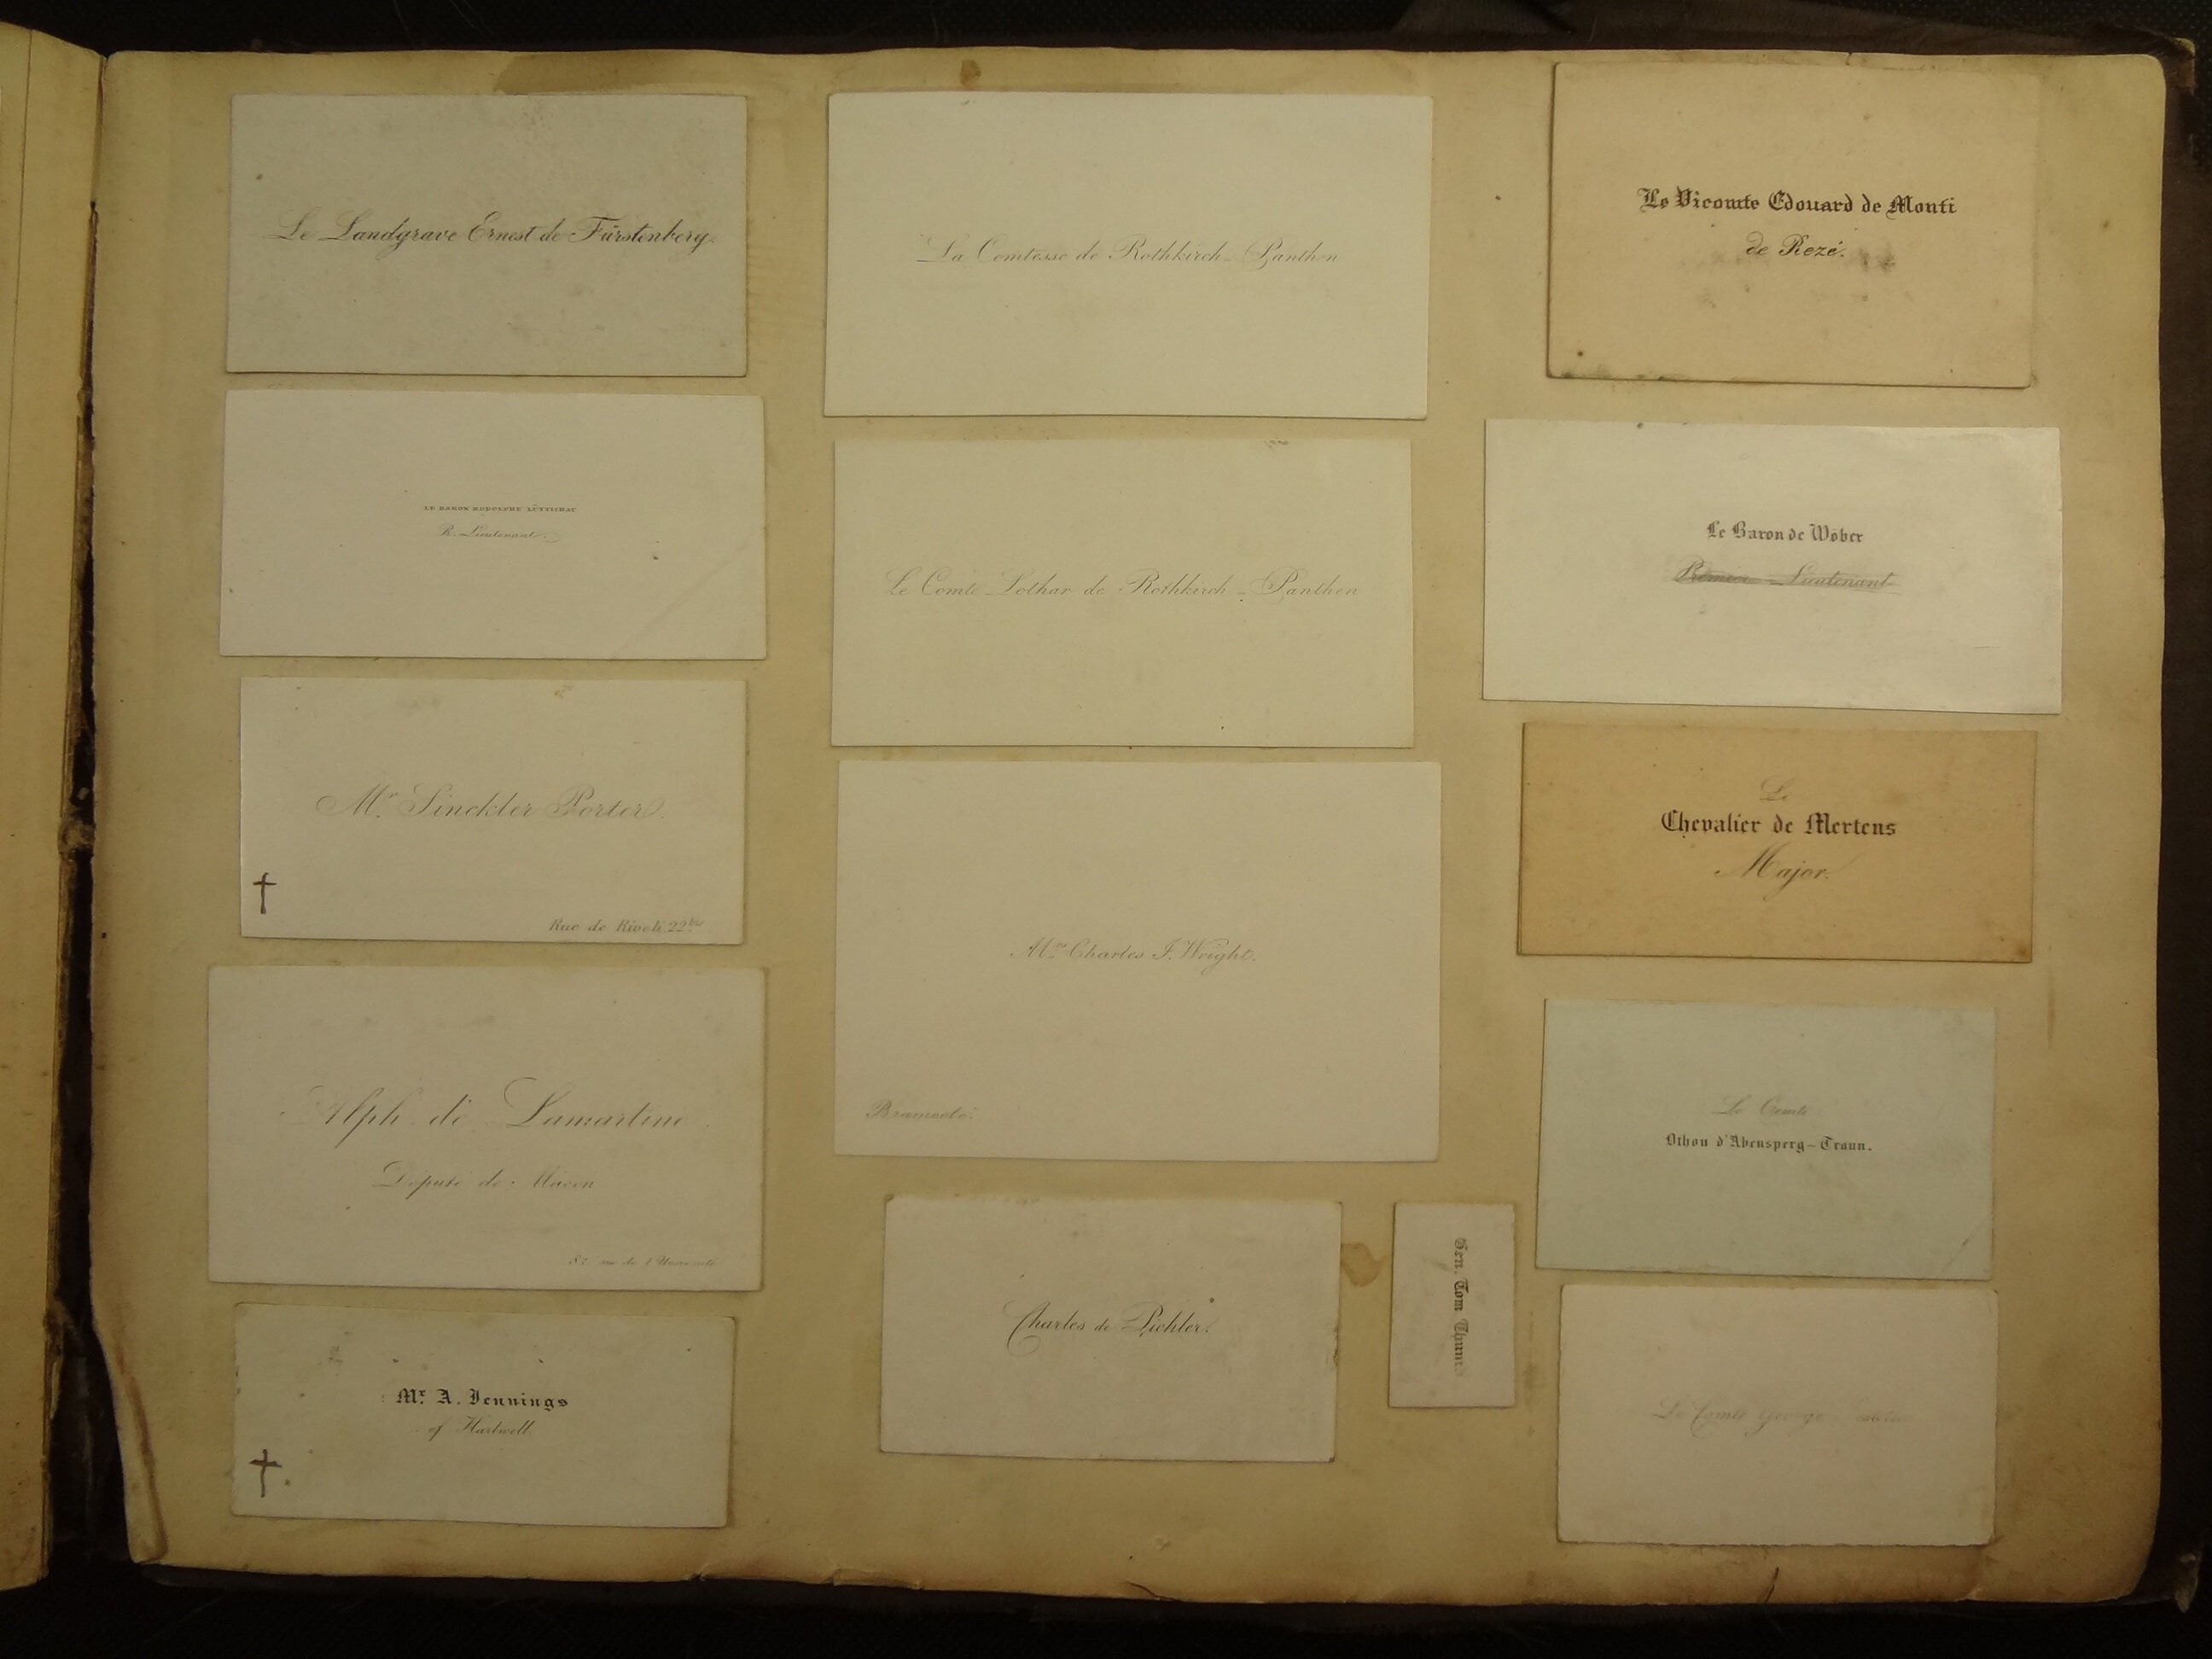 Le Landgrave Ernest de Fürstenberg.
LE BARON RODOLPHE LÜTTICHAU
R. Lieutenant.
Mr. Sinckler Porter.
Rue de Rivoli 22 bis
Alph. de Lamartine
Député de Macon
82 rue de l'Université
Mr. A. Jennings
of Hartwell.
La Comtesse de Rothkirch-Panthen
Le Comte Lothar de Rothkirch-Panthen
Mrs. Charles I. Wright.
Charles de Pichler.
Gen. Tom Thumb
Le Vicomte Edouard de Monti
de Rezé.
Le Baron de Wöber
Lieutenant
Le
Chevalier de Mertens
Major.
Le Comte
Othon d'Abensperg-Traun.
Le Comte George